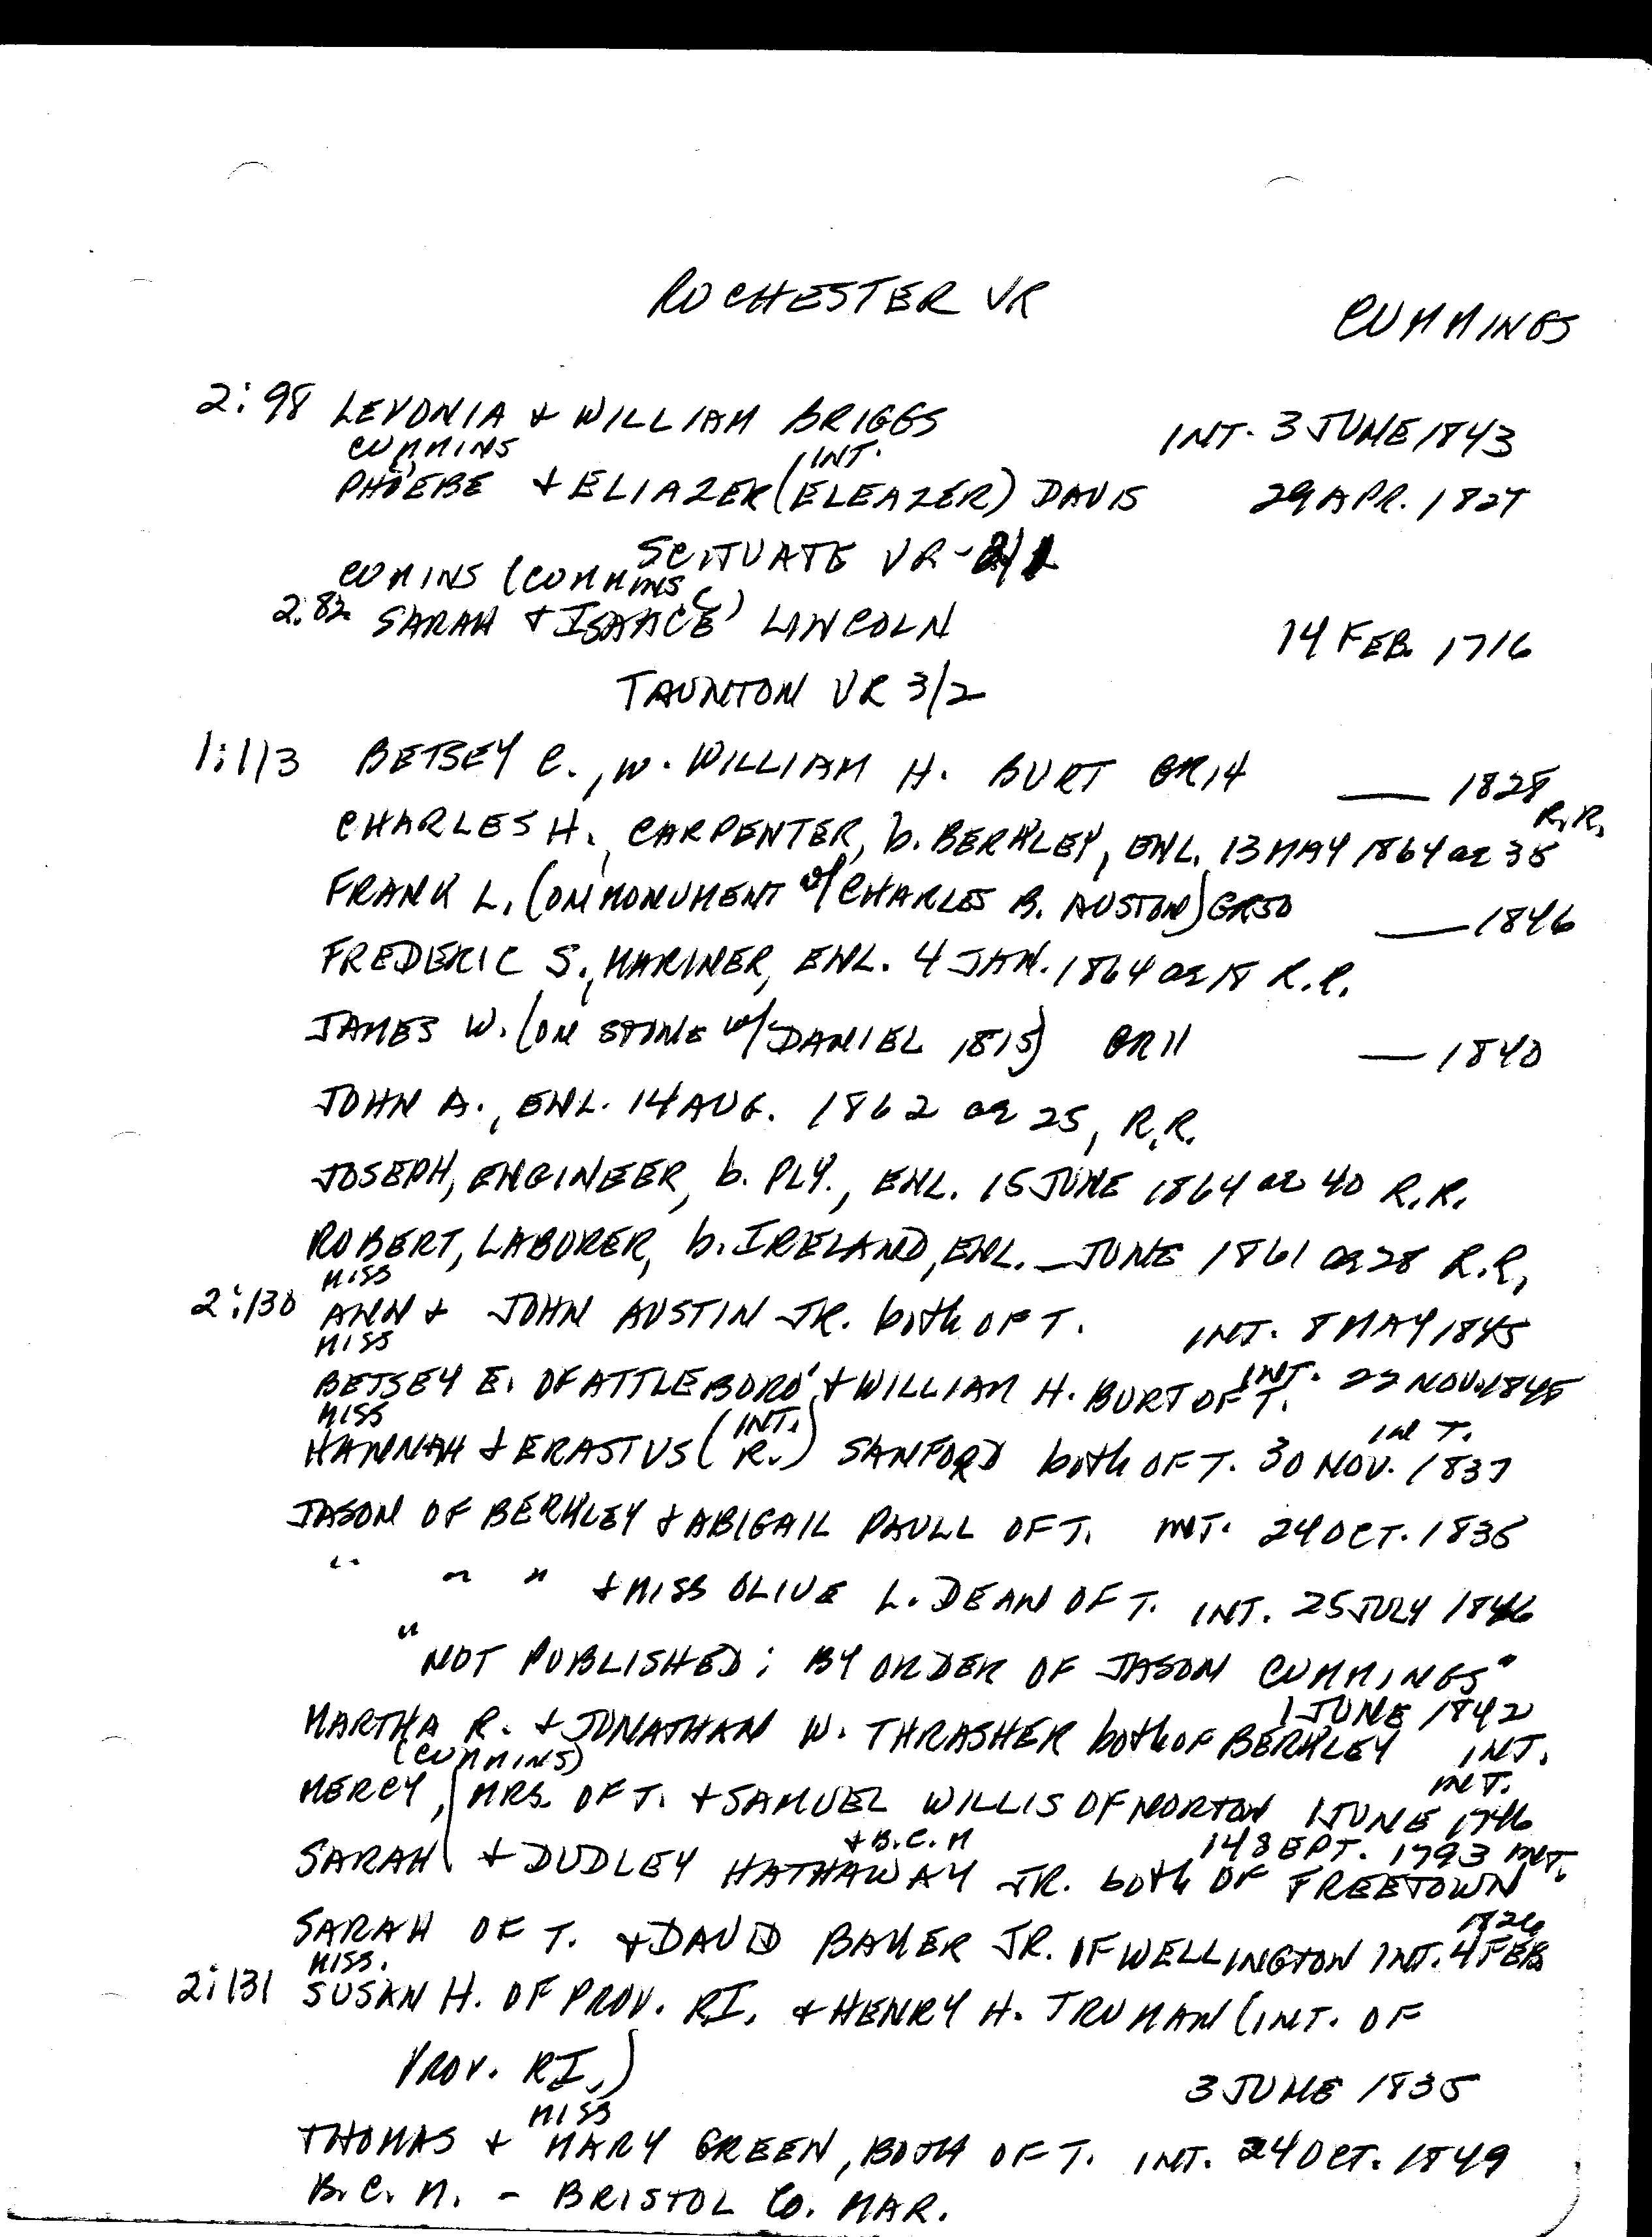 ROCHESTER VR
CUMMINGS
2:98 LEVONIA & WILLIAM BRIGGS INT. 3 JUNE 1843
CUMMINS INT.
PHOEBE & ELIAZER (ELEAZER) DAVIS 29 APR. 1827
SCITUATE VR - 2/1
CUMINS (CUMMINS
2:82 SARAH & ISAACE (C) LINCOLN 14 FEB. 1716
TAUNTON VR 3/2
1:113 BETSEY C., w. WILLIAM H. BURT GR14 — 1828
R.R.
CHARLES H., CARPENTER, b. BERKLEY, ENL. 13 MAY 1864 ae 35
FRANK L. (ON MONUMENT w/ CHARLES B. AUSTON) GR50 — 1846
FREDERIC S., MARINER, ENL. 4 JAN. 1864 ae 18 R.R.
JAMES W. (ON STONE w/ DANIEL 1815) GR11 — 1840
JOHN A., ENL. 14 AUG. 1862 ae 25, R.R.
JOSEPH, ENGINEER, b. PLY., ENL. 15 JUNE 1864 ae 40 R.R.
ROBERT, LABORER, b. IRELAND, ENL. _ JUNE 1861 ae 28 R.R.
MISS
2:130 ANN & JOHN AUSTIN JR. both OF T. INT. 8 MAY 1845
MISS
BETSEY E. OF ATTLEBORO' & WILLIAM H. BURT OF T. INT. 22 NOV. 1845
MISS (INT.) IN T.
HANNAH & ERASTUS (R.) SANFORD both OF T. 30 NOV. 1837
JASON OF BERKLEY & ABIGAIL PAULL OF T. INT. 24 OCT. 1835
" " " & MISS OLIVE L. DEAN OF T. INT. 25 JULY 1846
"NOT PUBLISHED; BY ORDER OF JASON CUMMINGS"
1 JUNE 1842
MARTHA R. & JONATHAN W. THRASHER both OF BERKLEY INT.
(CUMMINS) INT.
MERCY, MRS. OF T. & SAMUEL WILLIS OF NORTON 1 JUNE 1746
& B.C.M 14 SEPT. 1793 INT.
SARAH & DUDLEY HATHAWAY JR. both OF FREETOWN
1826
SARAH OF T. & DAVID BAKER JR. OF WELLINGTON INT. 4 FEB.
MISS.
2:131 SUSAN H. OF PROV. RI. & HENRY H. TRUMAN (INT. OF
PROV. RI.) 3 JUNE 1835
MISS
THOMAS & MARY GREEN, BOTH OF T. INT. 24 OCT. 1849
B.C.M. - BRISTOL CO. MAR.